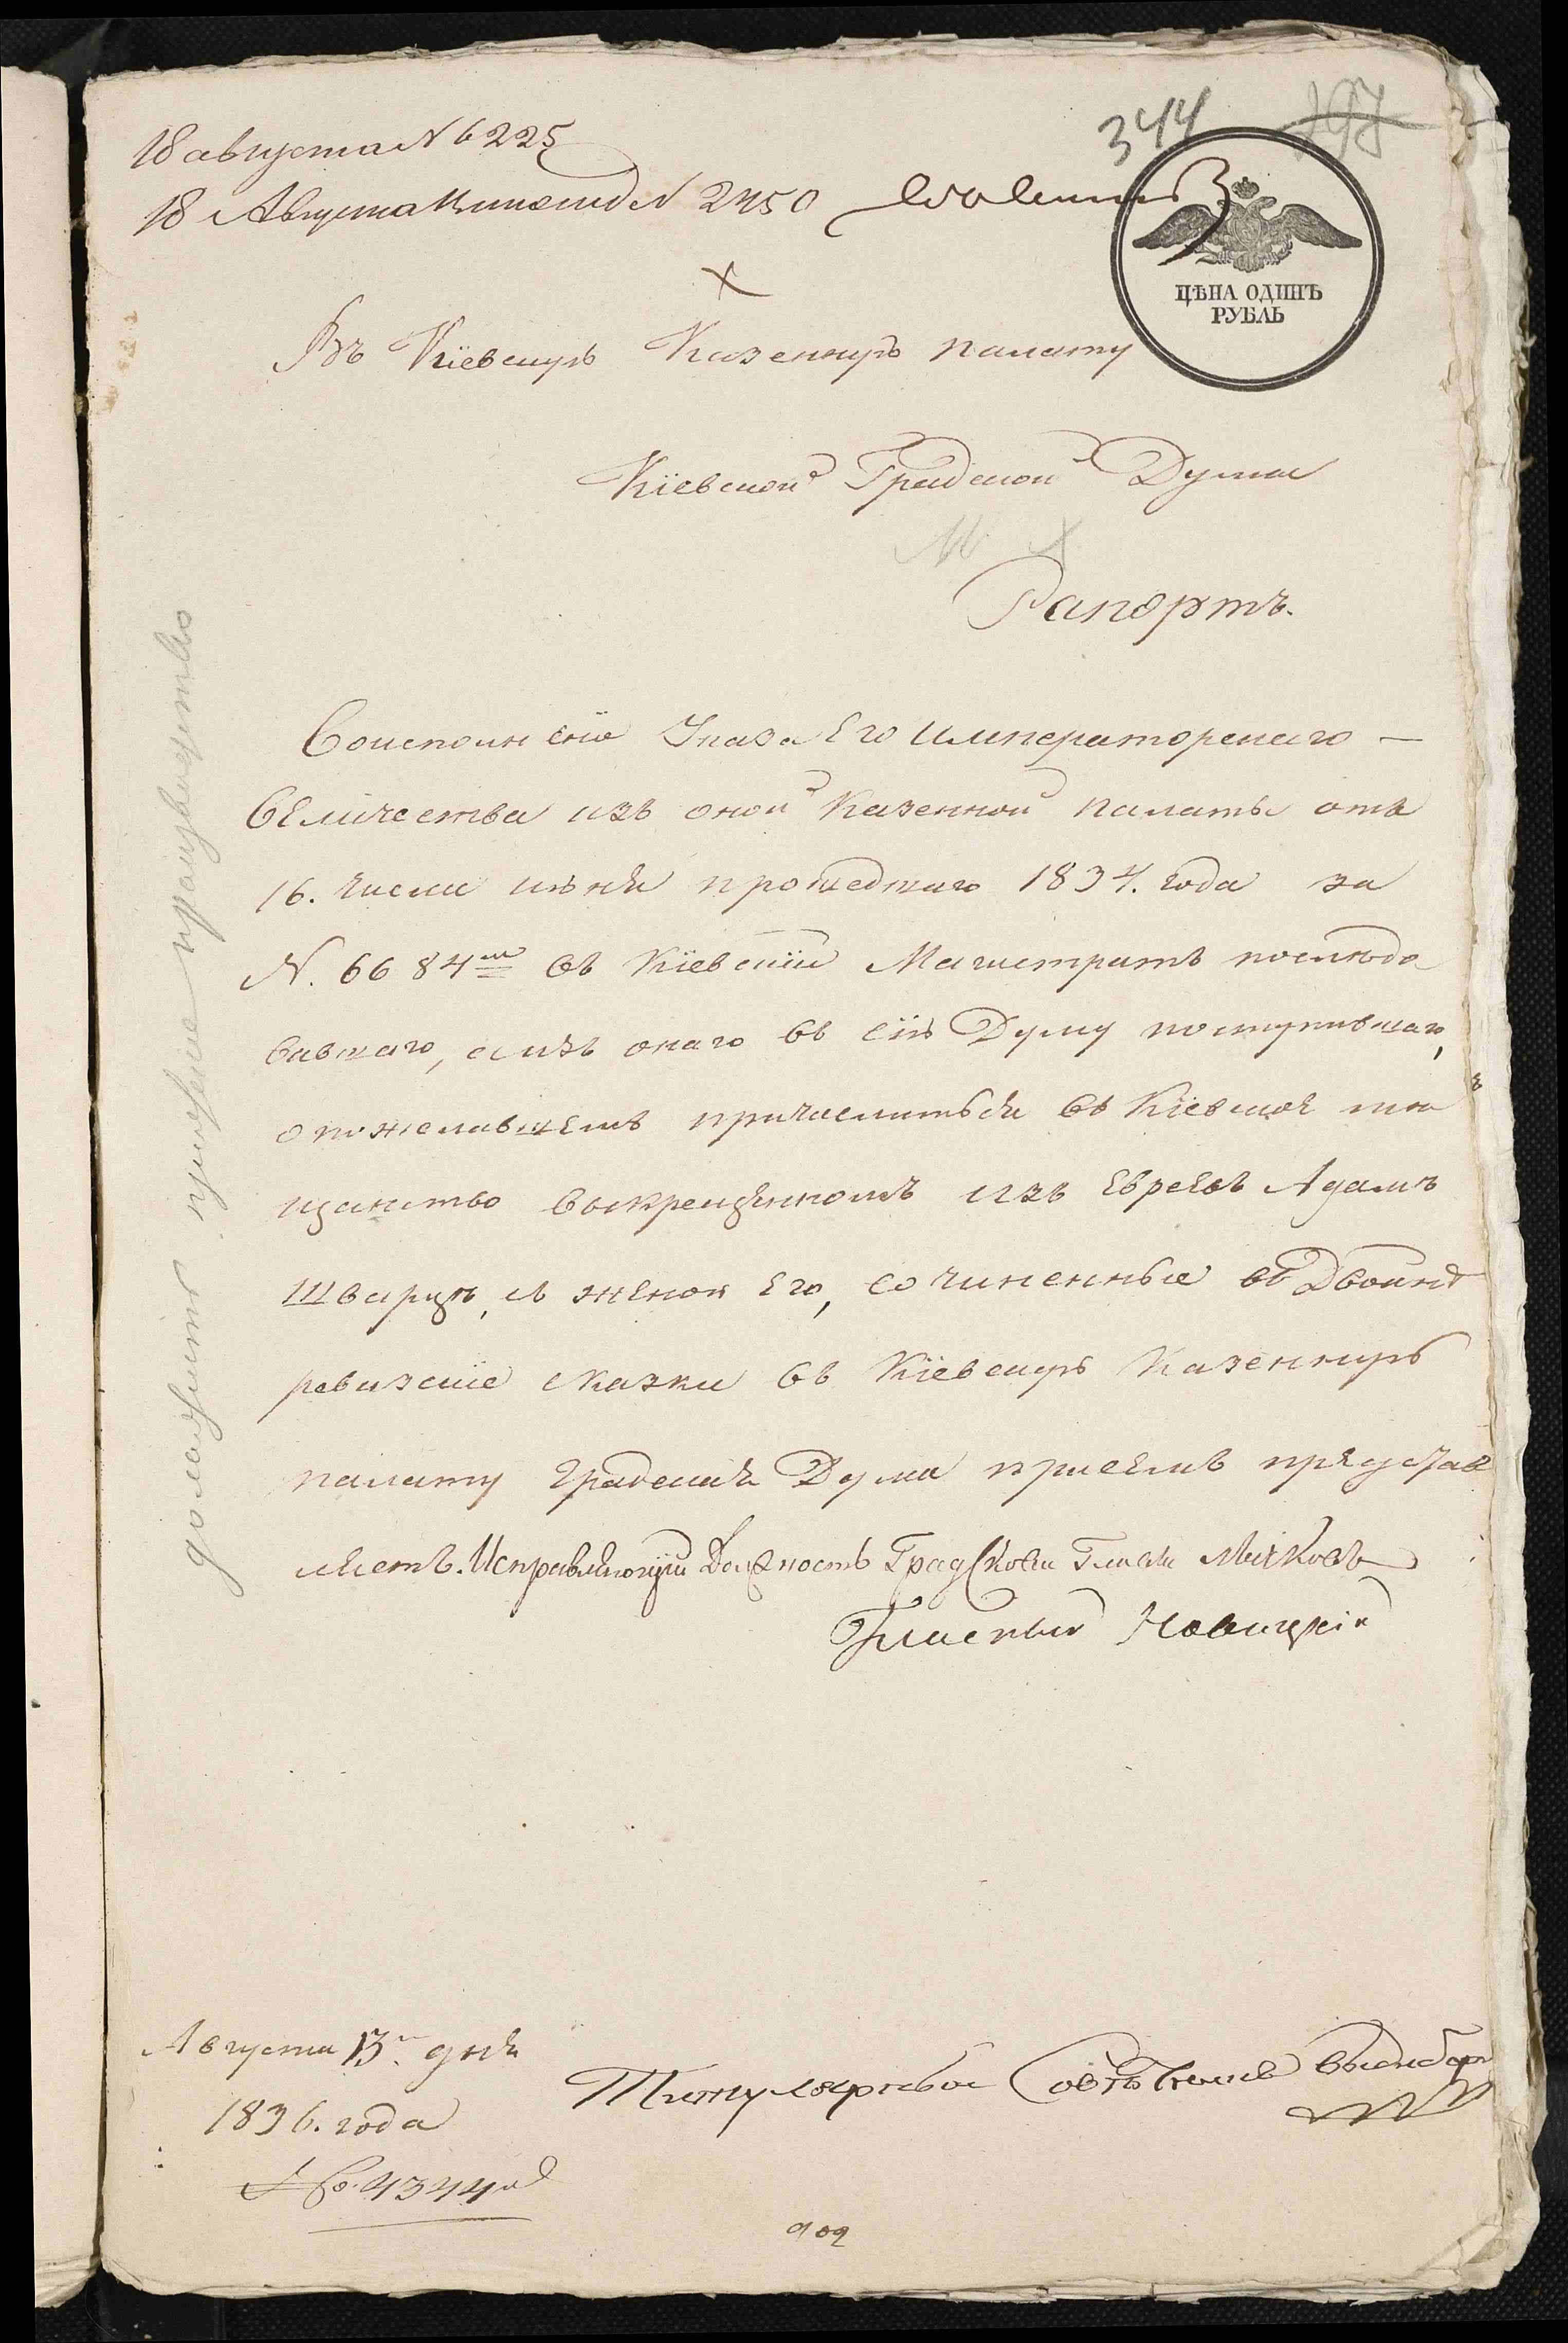 344
18 августа N 6225
18 Августа N 2450
ЦѢНА ОДИНЪ
РУБЛЬ
Въ Кіевскую Казенную палату
Кіевской Градской Думы
Рапортъ.
Воисполненіе Указа Его Императорскаго —
Величества изъ оной Казенной палаты отъ
16. числа іюня прошедшаго 1834. года за
N. 6684м въ Кіевскій Магистратъ последо
вавшаго, аизъ онаго въ сію Думу поступившаго,
опожелавшемъ причислиться въ Кіевское мѣ
щанство выкрещенномъ изъ Евреевъ Адамѣ
Шварцѣ, и женой Его, сочиненные въ Двойнѣ
ревизскіе сказки въ Кіевскую Казенную
палату Градская Дума присемъ представ
ляетъ. Исправляющій Должность Градскова Главы
Гласный Новицкій
доложить прилож
Августа 13. дня
1836. года
No. 4344й
Титулярный Совѣтникъ
909